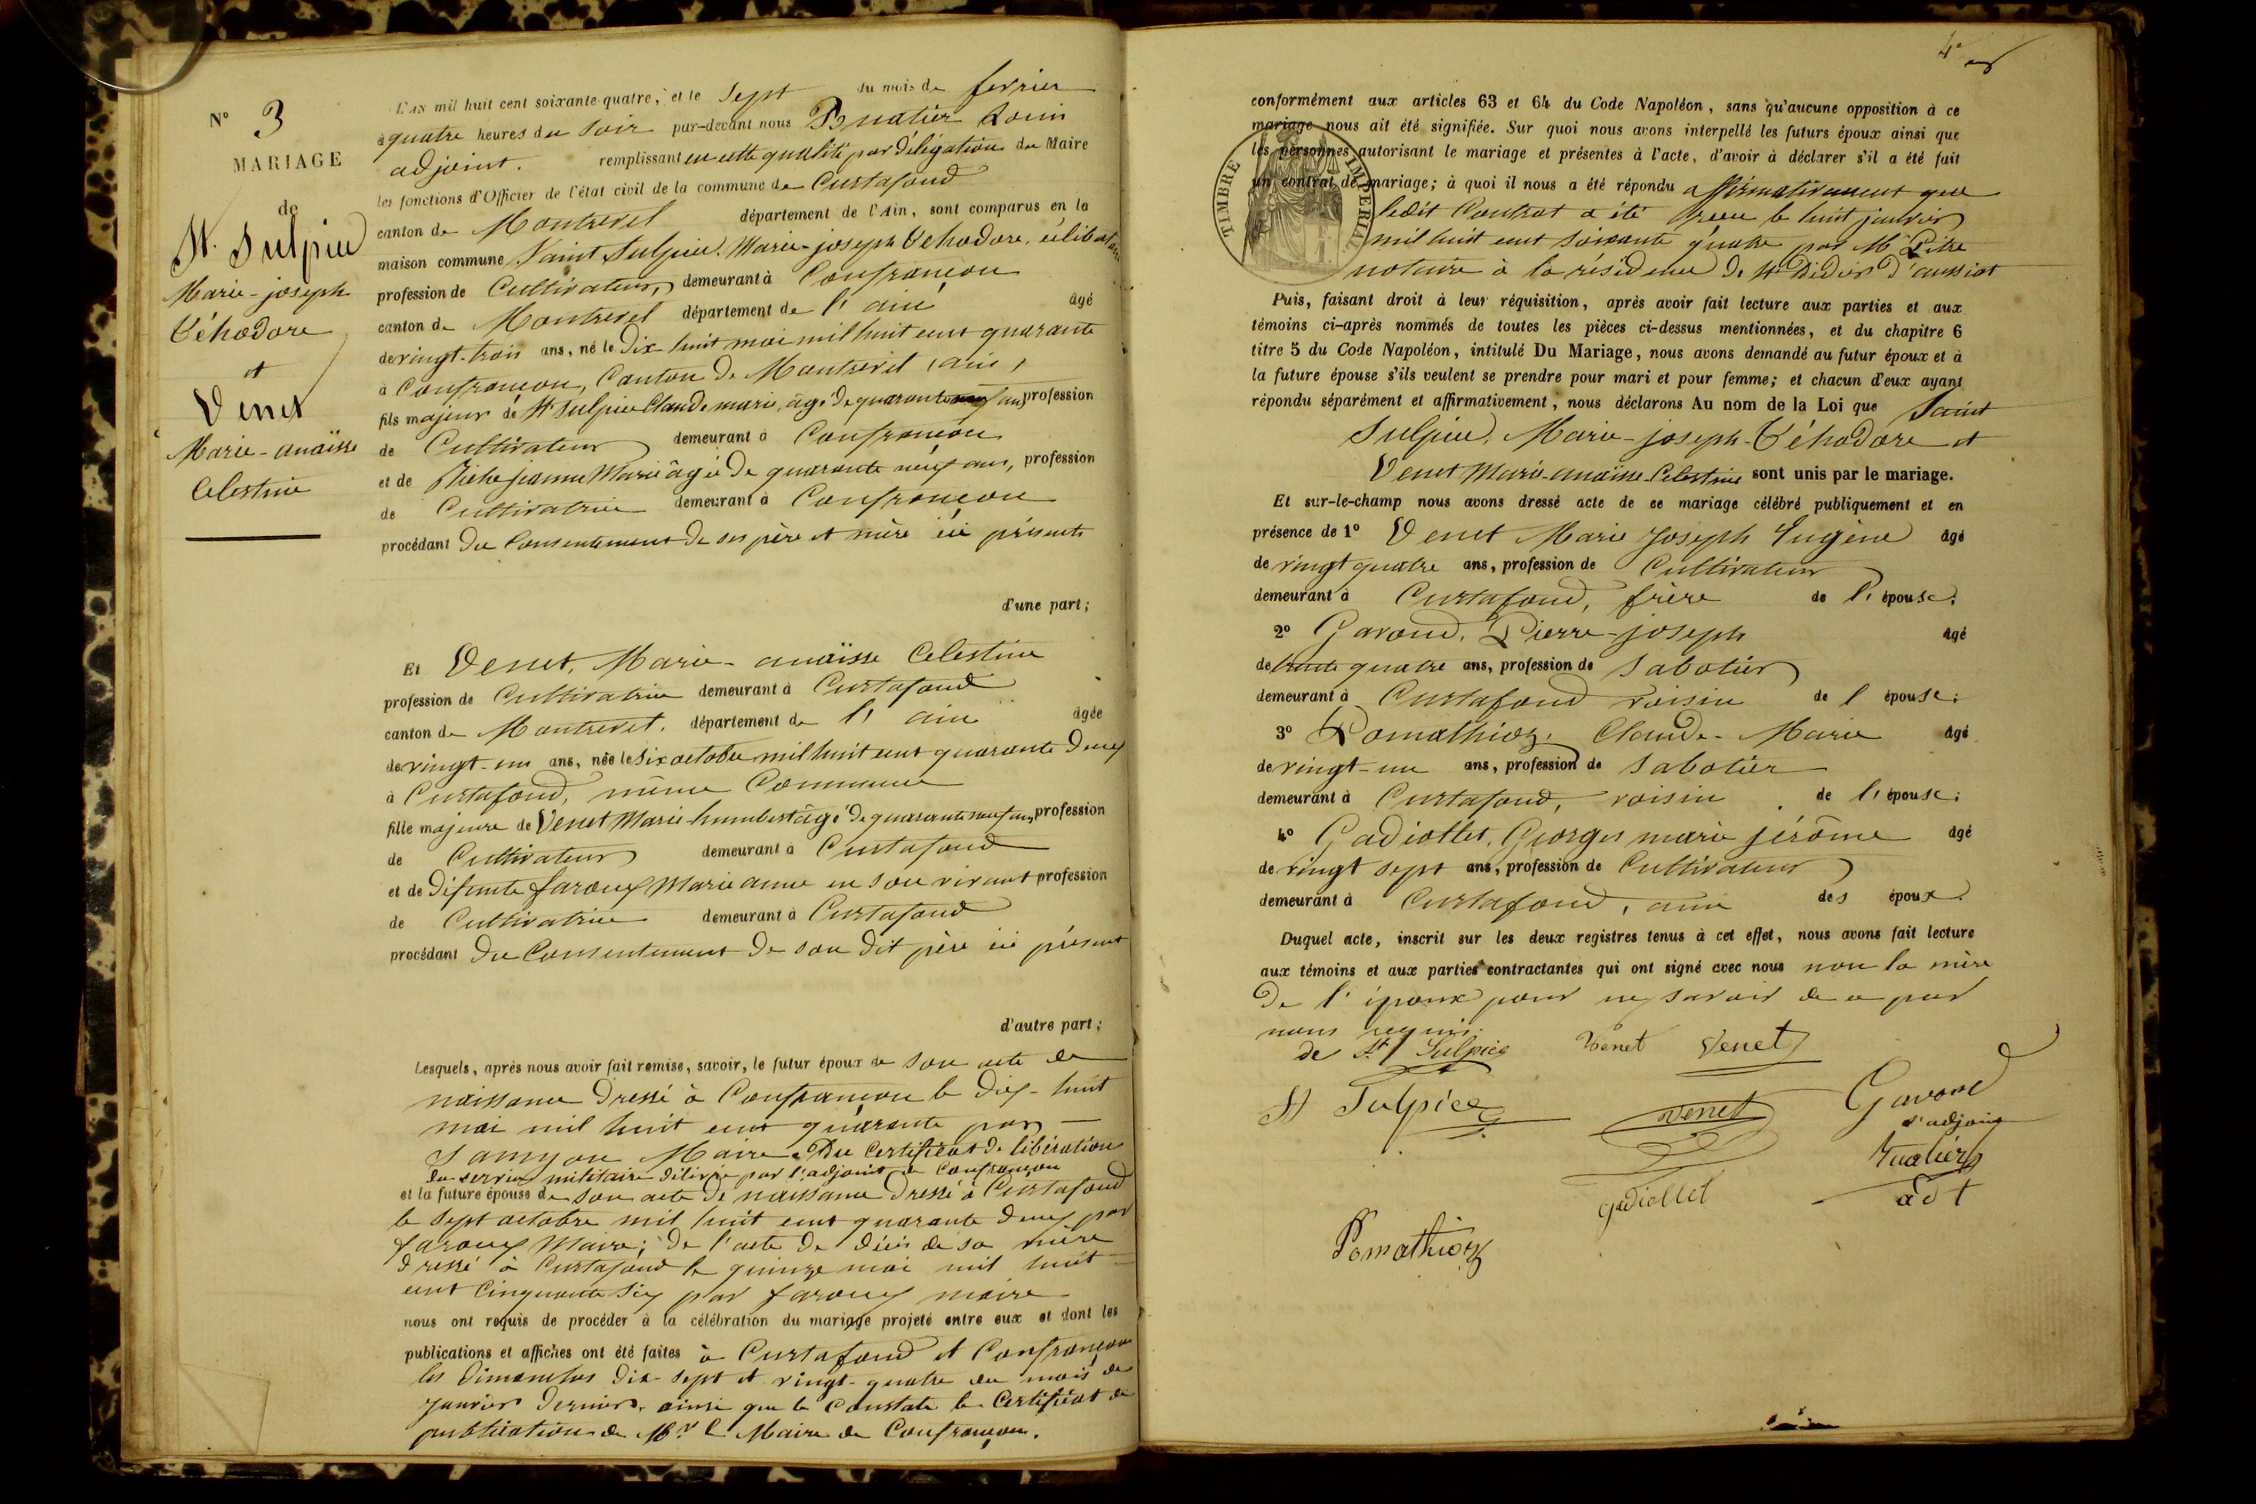 N° 3
MARIAGE
de
St. Sulpice
Marie-joseph
Théhodore
et
Venet
Marie-anaïsse
Celestine
L'AN mil huit cent soixante-quatre, et le sept du mois de fevrier
à quatre heures du soir par-devant nous
adjoint. remplissant en cette qualité par délégation du Maire
les fonctions d'Officier de l'état civil de la commune de Curtafond
canton de Montrevel département de l'Ain, sont comparus en la
maison commune Saint Sulpice. Marie-joseph Théhodore, célibataire
profession de Cultivateur, demeurant à Confrançon
canton de Montrevel département de l'ain âgé
de vingt-trois ans, né le Dix huit mai mil huit cent quarante
à Confrançon, Canton de Montrevel, ain,
fils majeur de St Sulpice Claude marie, âgé de quarante ans profession
de Cultivateur demeurant à Confrançon
et de jeanne Marie âgée de quarante neuf ans, profession
de Cultivatrice demeurant à Confrançon
procédant Du Consentement de ses père et mère ici présents
d'une part;
Et Venet, Marie-anaïsse Celestine
profession de Cultivatrice demeurant à Curtafond
canton de Montrevel. département de l'ain âgée
de vingt-un ans, née le six octobre mil huit cent quarante deux
à Curtafond, même Commune
fille majeure de Venet Marie-humbert âgé de quarante neuf ans, profession
de Cultivateur demeurant à Curtafond
et de Défunte faroux Marie anne en son vivant profession
de Cultivatrice demeurant à Curtafond
procédant Du Consentement de son dit père ici présent
d'autre part;
Lesquels, après nous avoir fait remise, savoir, le futur époux de son acte de
naissance Dressé à Confrançon le dix-huit
mai mil huit cent quarante par
Maire. Du Certificat de libération
du service militaire délivré par l'adjoint de Confrançon
et la future épouse de son acte de naissance Dressé à Curtafond
le sept octobre mil huit cent quarante deux par
faroux Maire; De l'acte de décès de sa mère
dressé à Curtafond le quinze mai mil huit
cent cinquante six par faroux maire
nous ont requis de procéder à la célébration du mariage projeté entre eux et dont les
publications et affiches ont été faites à Curtafond et Confrançon
les Dimanches dix-sept et vingt-quatre du mois de
janvier Dernier, ainsi que le Constate le Certificat de
publication de Mr le Maire de Confrançon.
4e
conformément aux articles 63 et 64 du Code Napoléon, sans qu'aucune opposition à ce
mariage nous ait été signifiée. Sur quoi nous avons interpellé les futurs époux ainsi que
les personnes autorisant le mariage et présentes à l'acte, d'avoir à déclarer s'il a été fait
un contrat de mariage; à quoi il nous a été répondu affirmativement que
ledit Contrat a été reçu le huit janvier
mil huit cent soixante quatre par Me Pitre
notaire à la résidence de St Didier d'aussiat
TIMBRE IMPÉRIAL
Puis, faisant droit à leur réquisition, après avoir fait lecture aux parties et aux
témoins ci-après nommés de toutes les pièces ci-dessus mentionnées, et du chapitre 6
titre 5 du Code Napoléon, intitulé Du Mariage, nous avons demandé au futur époux et à
la future épouse s'ils veulent se prendre pour mari et pour femme; et chacun d'eux ayant
répondu séparément et affirmativement, nous déclarons Au nom de la Loi que Saint
Sulpice, Marie-joseph-Théhodore et
Venet Marie-anaïsse-Celestine sont unis par le mariage.
Et sur-le-champ nous avons dressé acte de ce mariage célébré publiquement et en
présence de 1° Venet Marie Joseph Eugène âgé
de vingt quatre ans, profession de Cultivateur
demeurant à Curtafond, frère de l'épouse;
2° Gavand, Pierre-joseph âgé
de trente quatre ans, profession de sabotier
demeurant à Curtafond voisin de l'épouse;
3° Pomathioz, Claude-Marie âgé
de vingt-un ans, profession de sabotier
demeurant à Curtafond, voisin de l'épouse;
4° Gadiollet, Georges marie jérôme âgé
de vingt sept ans, profession de Cultivateur
demeurant à Curtafond, ami des époux.
Duquel acte, inscrit sur les deux registres tenus à cet effet, nous avons fait lecture
aux témoins et aux parties contractantes qui ont signé avec nous non la mère
De l'époux pour ne savoir de ce par
nous requis.
de St Sulpice Venet Venet
St Sulpice Venet Gavand
l'adjoint
gadiollet adt
Pomathioz